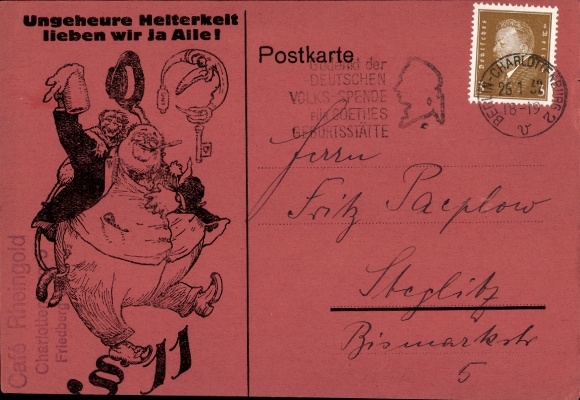 Ungeheure Heiterkeit
lieben wir ja Alle!
Postkarte
Gedenkt der
DEUTSCHEN
VOLKS-SPENDE
FÜR GOETHES
GEBURTSSTÄTTE
Deutsches Reich
BERLIN-CHARLOTTENBURG 2
26.1.32
18-19
v
Herrn
Fritz Paeplow
Steglitz
Bismarkstr
5
Café Rheingold
Charlotte
Friedburg
§ 11